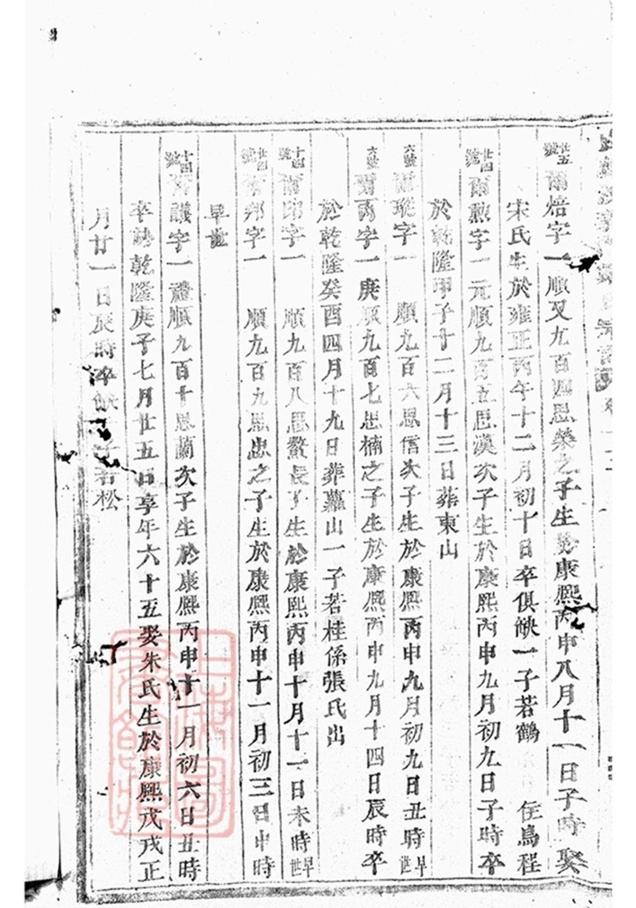 廿五號 爾焙字一 順又九百四思榮之子生於康熙丙申八月十一日子時娶
宋氏生於雍正丙午十二月初十日卒俱缺一子若鶴 住烏程
廿四號 爾勲字一元順九百五思漢次子生於康熙丙申九月初九日子時卒
於乾隆甲子十二月十三日葬東山
六號 爾璇字一 順九百六思信次子生於康熙丙申九月初九日丑時早世
六號 爾丙字一庚順九百七思楠之子生於康熙丙申九月十四日辰時卒
於乾隆癸酉四月十九日葬蘿山一子若桂係張氏出
十四號 爾印字一 順九百八思鰲長子生於康熙丙申十月十一日未時早世
廿四號 爾邦字一 順九百九思忠之子生於康熙丙申十一月初三日申時
早世
十四號 爾議字一禮順九百十思蘭次子生於康熙丙申十一月初六日丑時
卒於乾隆庚子七月廿五日享年六十五娶朱氏生於康熙戊戌正
月廿一日辰時卒缺 子若松